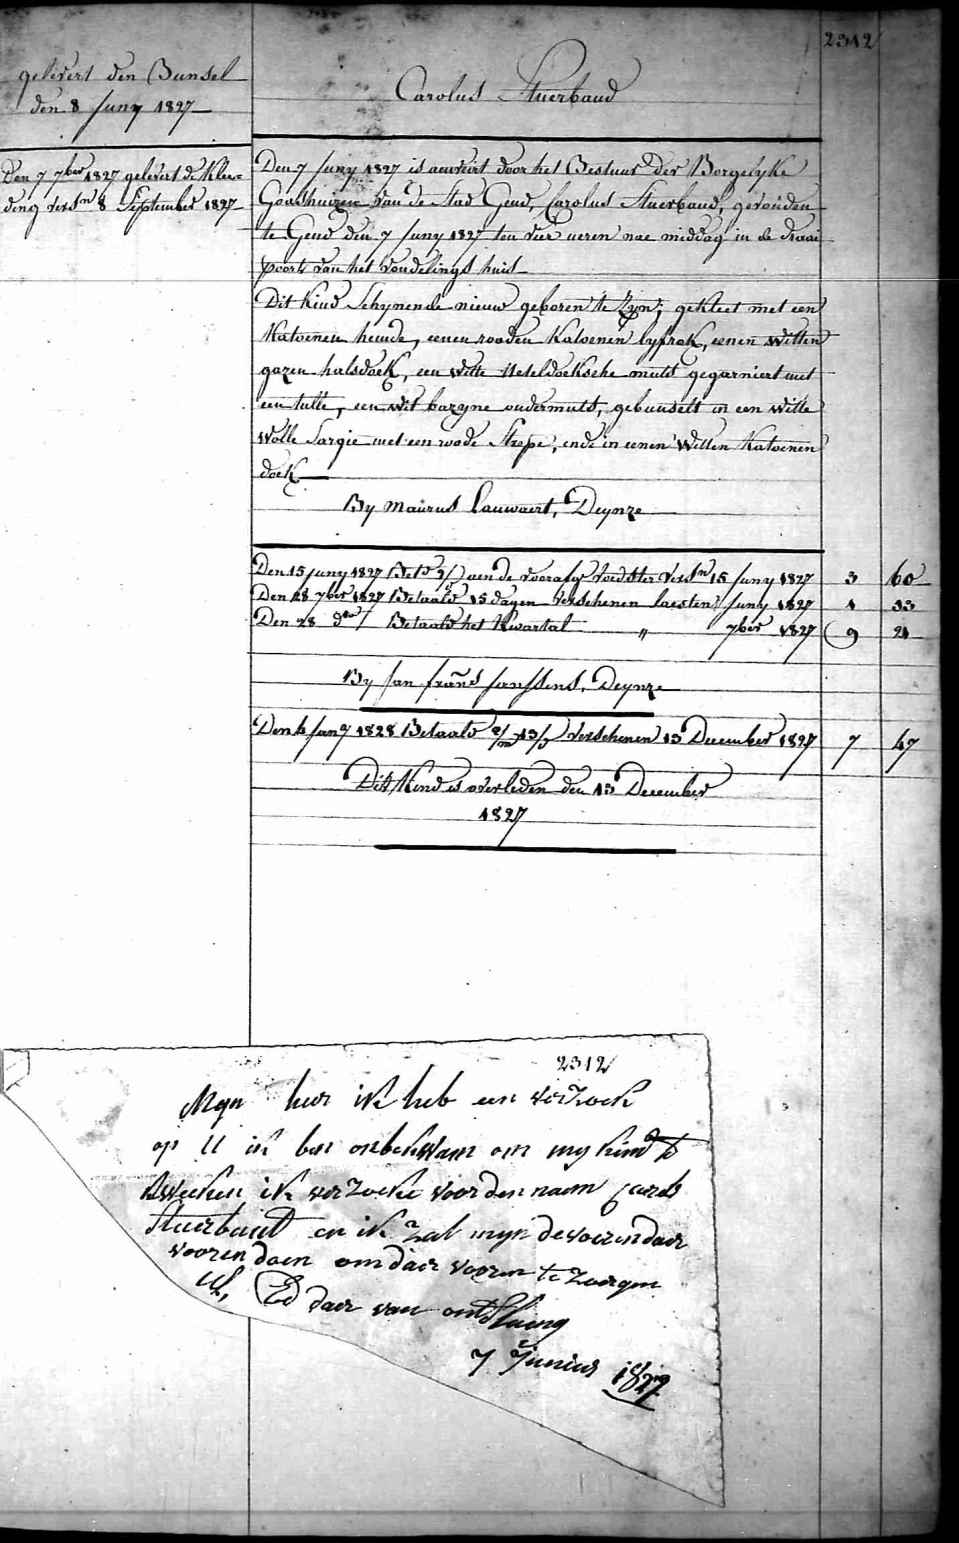 2312
gelevert den Bunsel
den 8 Juny 1827
Carolus Stuerbaud
Den 7 7ber 1827 gelevert de Klee=
ding versn 8 September 1827
Den 7 Juny 1827 is aenveirt door het Bestuur Der Borgelyke
Godshuizen van de Stad Gend, Carolus Stuerbaud, gevonden
te Gend den 7 Juny 1827 ten vier ueren nae middag in de draai
poorte van het Vondelings huis
Dit Kind Schynende nieuw geboren te zyn; gekleet met een
Katoenen hemde, eenen rooden Katoenen lyfrok, eenen witten
gazen halsdoek, een witte Neteldoeksche muts gegarniert met
een tulle, een wit bazyne ondermuts, gebunselt in een witte
Wolle Sargie met een roode Strepe, ende in eenen Witten Katoenen
doek
By Maurus Lauwaert, Deynze
Den 15 Juny 1827 Betd aen de voorafge Voedster Versn 15 Juny 1827 3 60
Den 28 7ber 1827 Betaald 15 dagen Verschenen laesten Juny 1827 1 33
Den 28 do Betaald het Kwartal " 7ber 1827 9 21
By Jan frans Janssens, Deynze
Den 4 Jany 1828 Betaald 2/m 13/d Verschenen 13 December 1827 7 47
Dit Kind is overleden den 13 December
1827
2312
Myn heer ik heb een verzoek
op U ik ben onbekwam om myn kind te
kweeken ik verzoeke voor den naem Carels
Stuerbaut en ik zal myn devoeren daer
vooren doen om daer vooren te zorgen
UL, Ed daer van ontslaeng
7 Junius 1827